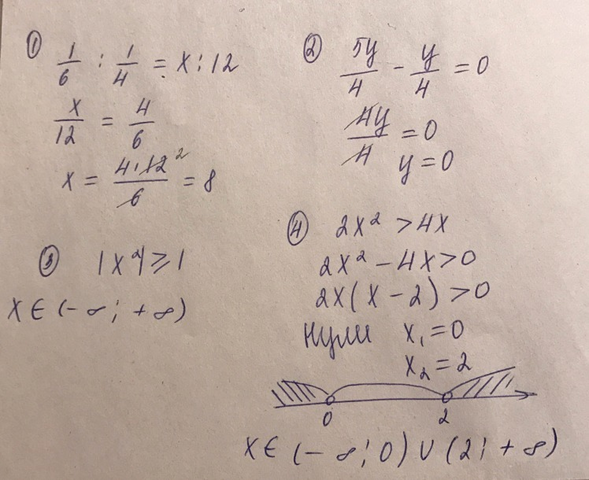 ① 1/6 : 1/4 = x : 12
x/12 = 4/6
x = 4·12²/6 = 8
② 5y/4 - y/4 = 0
4y/4 = 0
y = 0
③ |x²| ≥ 1
x ∈ (-∞; +∞)
④ 2x² > 4x
2x² - 4x > 0
2x(x - 2) > 0
Нули x₁ = 0
x₂ = 2
0 2
x ∈ (-∞; 0) ∪ (2; +∞)